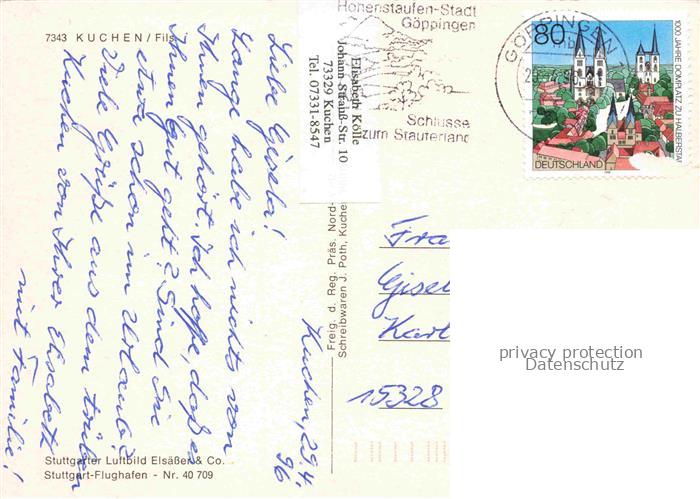 7343 KUCHEN / Fils
Liebe Gisela!
Lange habe ich nichts von
Ihnen gehört. Ich hoffe, daß es
Ihnen gut geht? Sind Sie
etwa schon im Urlaub?
Viele Grüße aus dem trüben
Kuchen von Ihrer Elisabeth
mit Familie!
Kuchen, 29.4.
96
Stuttgarter Luftbild Elsäßer & Co.
Stuttgart-Flughafen - Nr. 40 709
Elisabeth Kölle
Johann-Strauß-Str. 10
73329 Kuchen
Tel. 07331-8547
Freig. d. Reg. Präs. Nord-
Schreibwaren J. Poth, Kuche
Hohenstaufen-Stadt
Göppingen
Schlüssel
zum Stauferland
GÖPPINGEN
80
1000 JAHRE DOMPLATZ ZU HALBERSTA
DEUTSCHLAND
Fra
Gisel
Karl
15328
privacy protection
Datenschutz